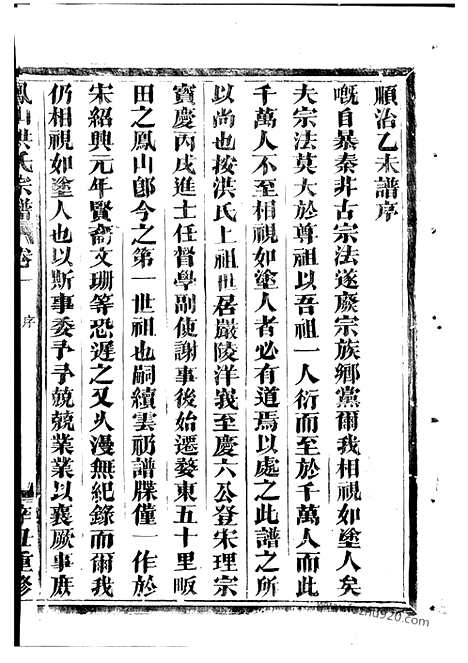 順治乙未譜序
嘅自暴秦非古宗法遂廢宗族鄉黨爾我相視如塗人矣
夫宗法莫大於尊祖以吾祖一人衍而至於千萬人而此
千萬人不至相視如塗人者必有道焉以處之此譜之所
以尚也按洪氏上祖世居嚴陵洋峩至慶六公登宋理宗
寶慶丙戌進士任督學副使謝事後始遷婺東五十里畈
田之鳳山郎今之第一世祖也嗣續雲礽譜牒僅一作於
宋紹興元年賢裔文珊等恐遲之又久漫無紀錄而爾我
仍相視如塗人也以斯事委予予兢兢業業以襄厥事庶
鳳山洪氏宗譜 卷一 序 辛丑重修
www.fozhu920.com